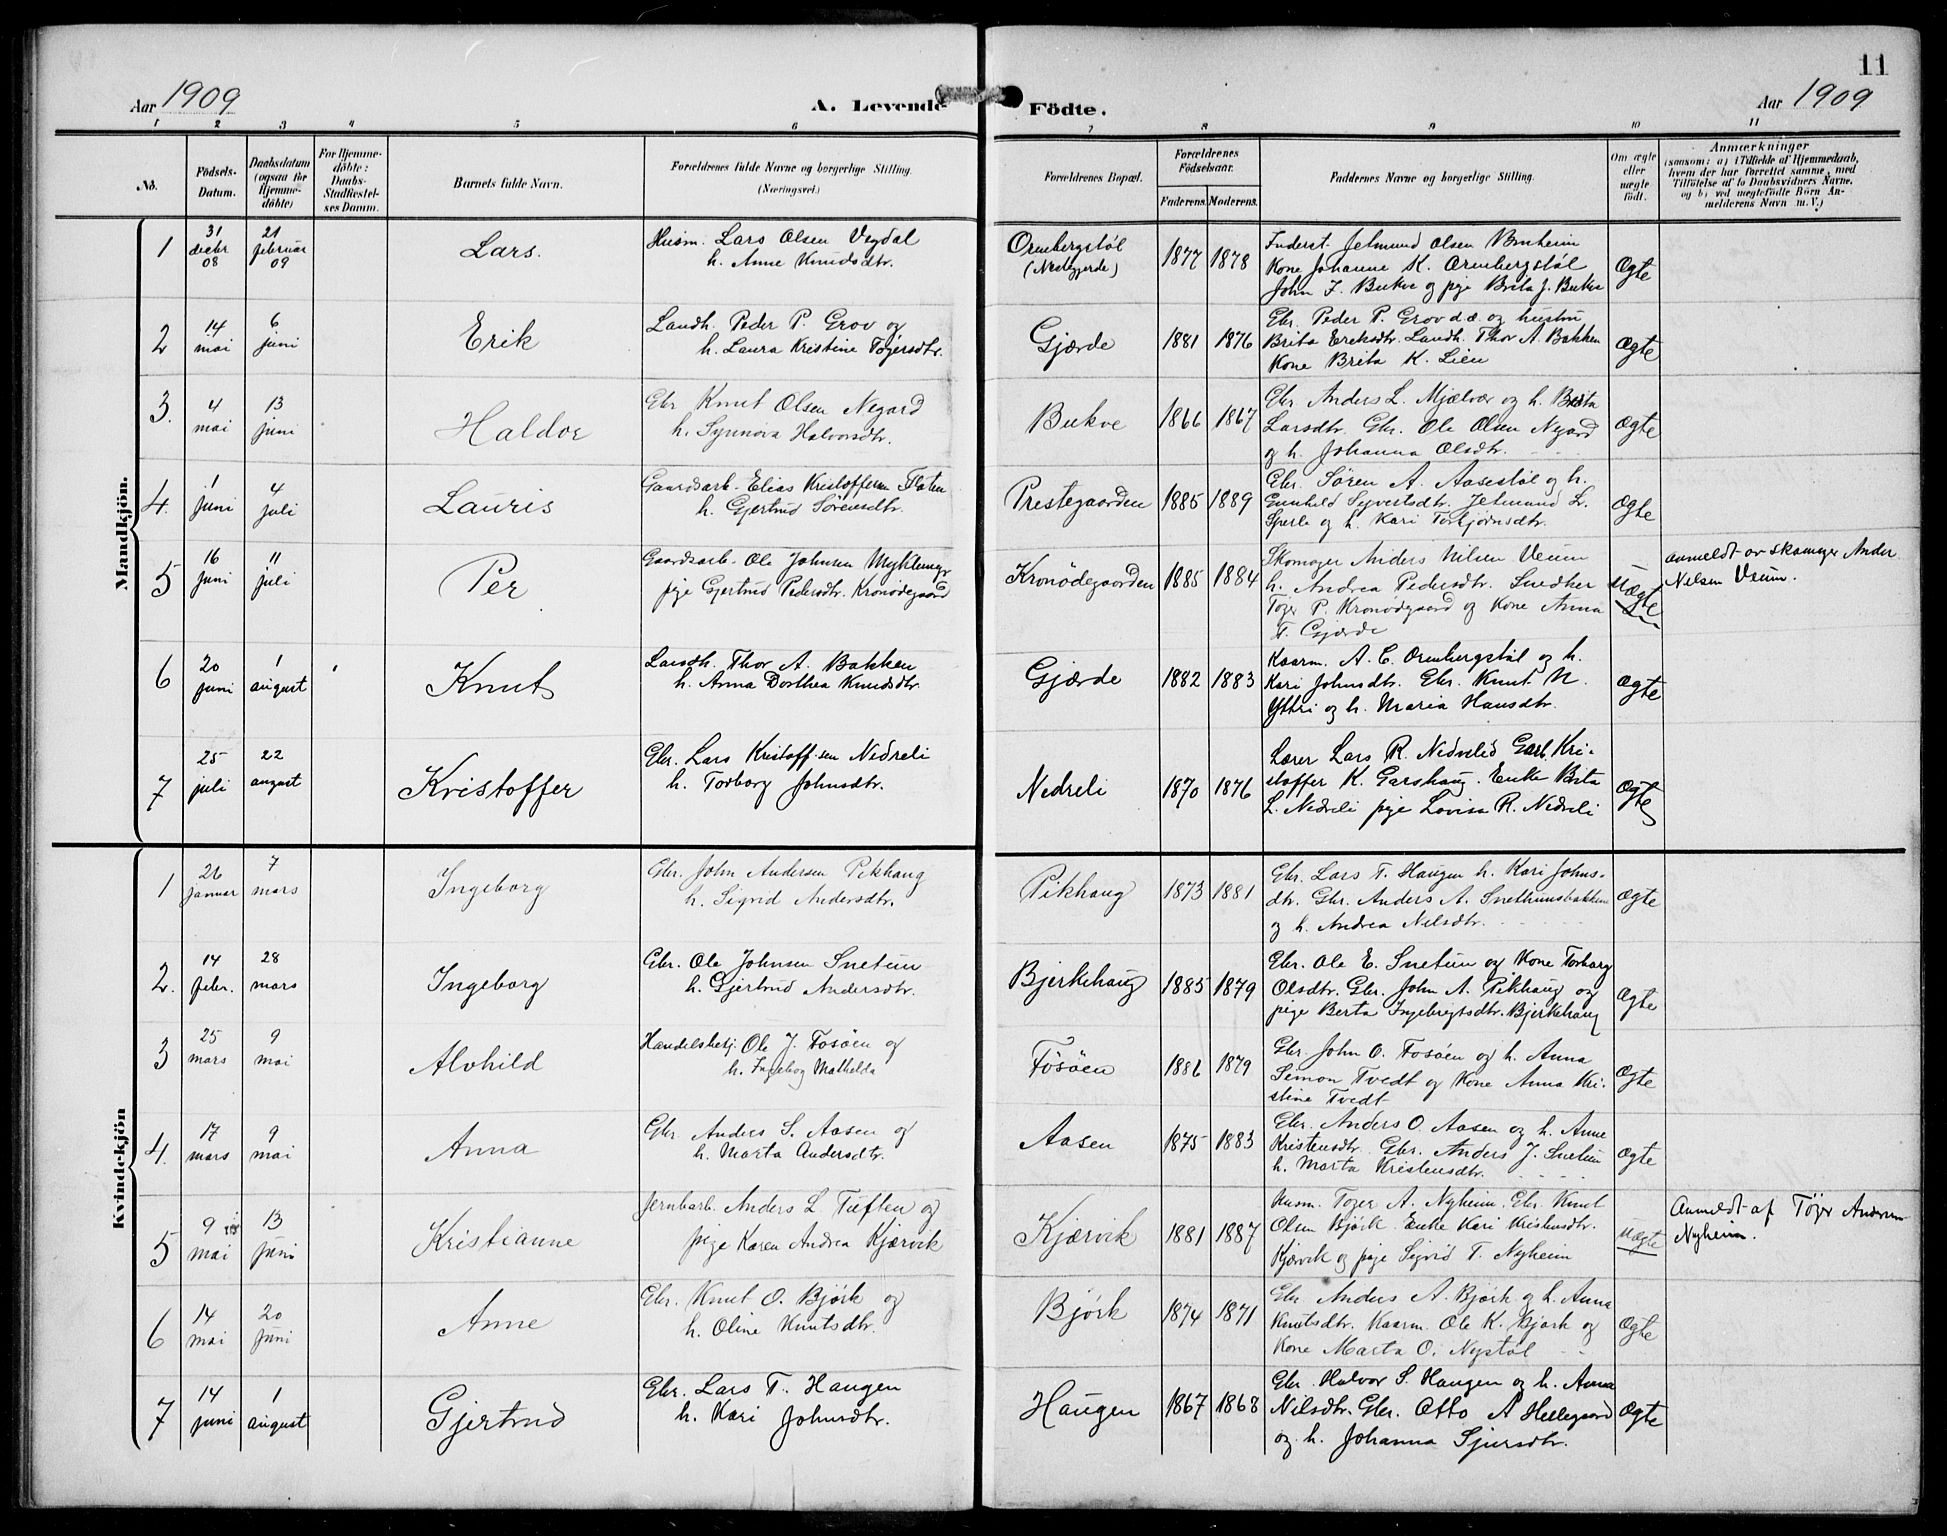 11
Aar 1909
A. Levende Födte.
Aar 1909
1 2 3 4 5 6 7 8 9 10 11
No.
Födsels-
Datum.
Daabsdatum
(ogsaa for
Hjemme-
döbte)
For Hjemme-
döbte:
Daabs-
Stadfæstel-
ses Datum.
Barnets fulde Navn.
Forældrenes fulde Navne og borgerlige Stilling.
(Næringsvei.)
Forældrenes Bopæl.
Forældrenes
Födselsaar.
Faderens. Moderens.
Faddernes Navne og borgerlige Stilling.
Om ægte
eller
uægte
födt.
Anmærkninger
(saasom: a) i Tilfælde af Hjemmedaab,
hvem der har forrettet samme, med
Tilföielse af to Daabsvidners Navne,
og b) ved uegtefödte Börn An-
melderens Navn m. V.)
Mandkjön.
1
31 decbr 08
21 februar 09
Lars.
Husm. Lars Olsen Vegdal
h. Anne Knudsdtr.
Ormbergstøl
(Nestegjerde)
1877 1878
Inderst. Jetmund Olsen Vinheim
Kone Johanne K. Ormbergstøl
John J. Bukve og pige Brita J. Bukve
Ægte
2
14 mai
6 juni
Erik
Landh. Peder P. Grov og
h. Laura Kristine Tøgersdtr.
Gjærde
1881 1876
Gbr. Peder P. Grov d.æ. og hustru
Brita Eriksdtr. Landh. Thor A. Bakken
Kone Brita K. Lien
Ægte
3.
4 mai
13 juni
Haldor
Gbr Knut Olsen Negard
h. Synnøva Halvorsdtr.
Bukve
1866 1867
Gbr. Anders L. Mjælvær og h. Brita
Larsdtr. Gbr. Ole Olsen Negard
og h. Johanna Olsdtr.
Ægte
4.
1 juni
4 juli
Lauris
Gaardsarb. Elias Kristoffersen Flaten
h. Gjertrud Sörensdtr.
Prestegaarden
1885 1889
Gbr. Søren A. Aasestøl og h.
Gunhild Syvertsdtr. Jetmund L.
Sperle og h. Kari Torbjørnsdtr.
Ægte
5
16 juni
11 juli
Per
Gaardsarb. Ole Johnsen Myklemyr
pige Gjertrud Pedersdtr. Kronødegaard
Kronødegaarden
1885 1884
Skomager Anders Nilsen Veum
h. Andrea Pedersdtr. Snedker
Tøger P. Kronødgaard og Kone Anna
T. Gjærde
Uægte
anmeldt av skomager Anders
Nilsen Veum.
6
20 juni
1 august
Knut
Landh. Thor A. Bakken
h. Anna Dorthea Knudsdtr.
Gjærde
1882 1883
Kaarm. A. C. Ormbergstøl og h.
Kari Johnsdtr. Gbr. Knut N.
Yttri og h. Maria Hansdtr.
Ægte
7
25 juli
22 august
Kristoffer
Gbr. Lars Kristoff.sen Nedreli
h. Torborg Johnsdtr.
Nedreli
1870 1876
Lærer Lars R. Nedrelid Garb. Kri-
stoffer K. Garshaug. Enke Brita
L. Nedreli pige Lovisa R. Nedreli
Ægte
Kvindekjön
1
26 januar
7 mars
Ingeborg
Gbr. John Andersen Pikhaug
h. Sigrid Andersdtr.
Pikhaug
1873 1881
Gbr. Lars T. Haugen h. Kari Johns-
dtr. Gbr. Anders A. Snethunsbakken
og h. Andrea Nilsdtr.
Ægte
2.
14 febr.
28 mars
Ingeborg
Gbr. Ole Johnsen Snetun
h. Gjertrud Andersdtr.
Bjerkehaug
1885 1879
Gbr. Ole E. Snetun og Kone Torborg
Olsdtr. Gbr. John A. Pikhaug og
pige Berta Ingebrigtsdtr. Bjerkehaug
Ægte
3
25 mars
9 mai
Alvhild
Handelsbetj. Ole J. Fosøen og
h. Ingeborg Mathilda
Fösöen
1886 1879
Gbr. John O. Fosøen og h. Anna
Simon Tvedt og Kone Anna Kri-
stine Tvedt
Ægte
4.
17 mars
9 mai
Anna
Gbr Anders S. Aasen og
h. Marta Andersdtr.
Aasen
1875 1883
Gbr. Anders O. Aasen og h. Anne
Kristensdtr. Gbr. Anders J. Snetun
h. Marta Kristensdtr.
Ægte
5
9 mai
13 juni
Kristianne
Jernbarb. Anders L Tuften og
pige Karen Andrea Kjærvik
Kjærvik
1881 1887
Husm. Tøger A. Nyheim. Gbr. Knut
Olsen Bjørk. Enke Kari Kristensdtr.
Kjærvik og pige Sigrid T. Nyheim
Uægte
Anmeldt af Töger Andersen
Nyheim.
6
14 mai
20 juni
Anne
Gbr. Knut O. Bjørk og
h. Oline Knutsdtr.
Bjørk
1874 1871
Gbr Anders A. Bjørk og h. Anna
Knutsdtr. Kaarm. Ole K. Bjørk og
Kone Marta O. Nystøl
Ægte
7
14 juni
1 august
Gjertrud
Gbr. Lars T. Haugen
h. Kari Johnsdtr.
Haugen
1867 1868
Gbr. Halvor S. Haugen og h. Anna
Nilsdtr. Gbr. Otto A Hellegaard
og h. Johanna Sjursdtr.
Ægte